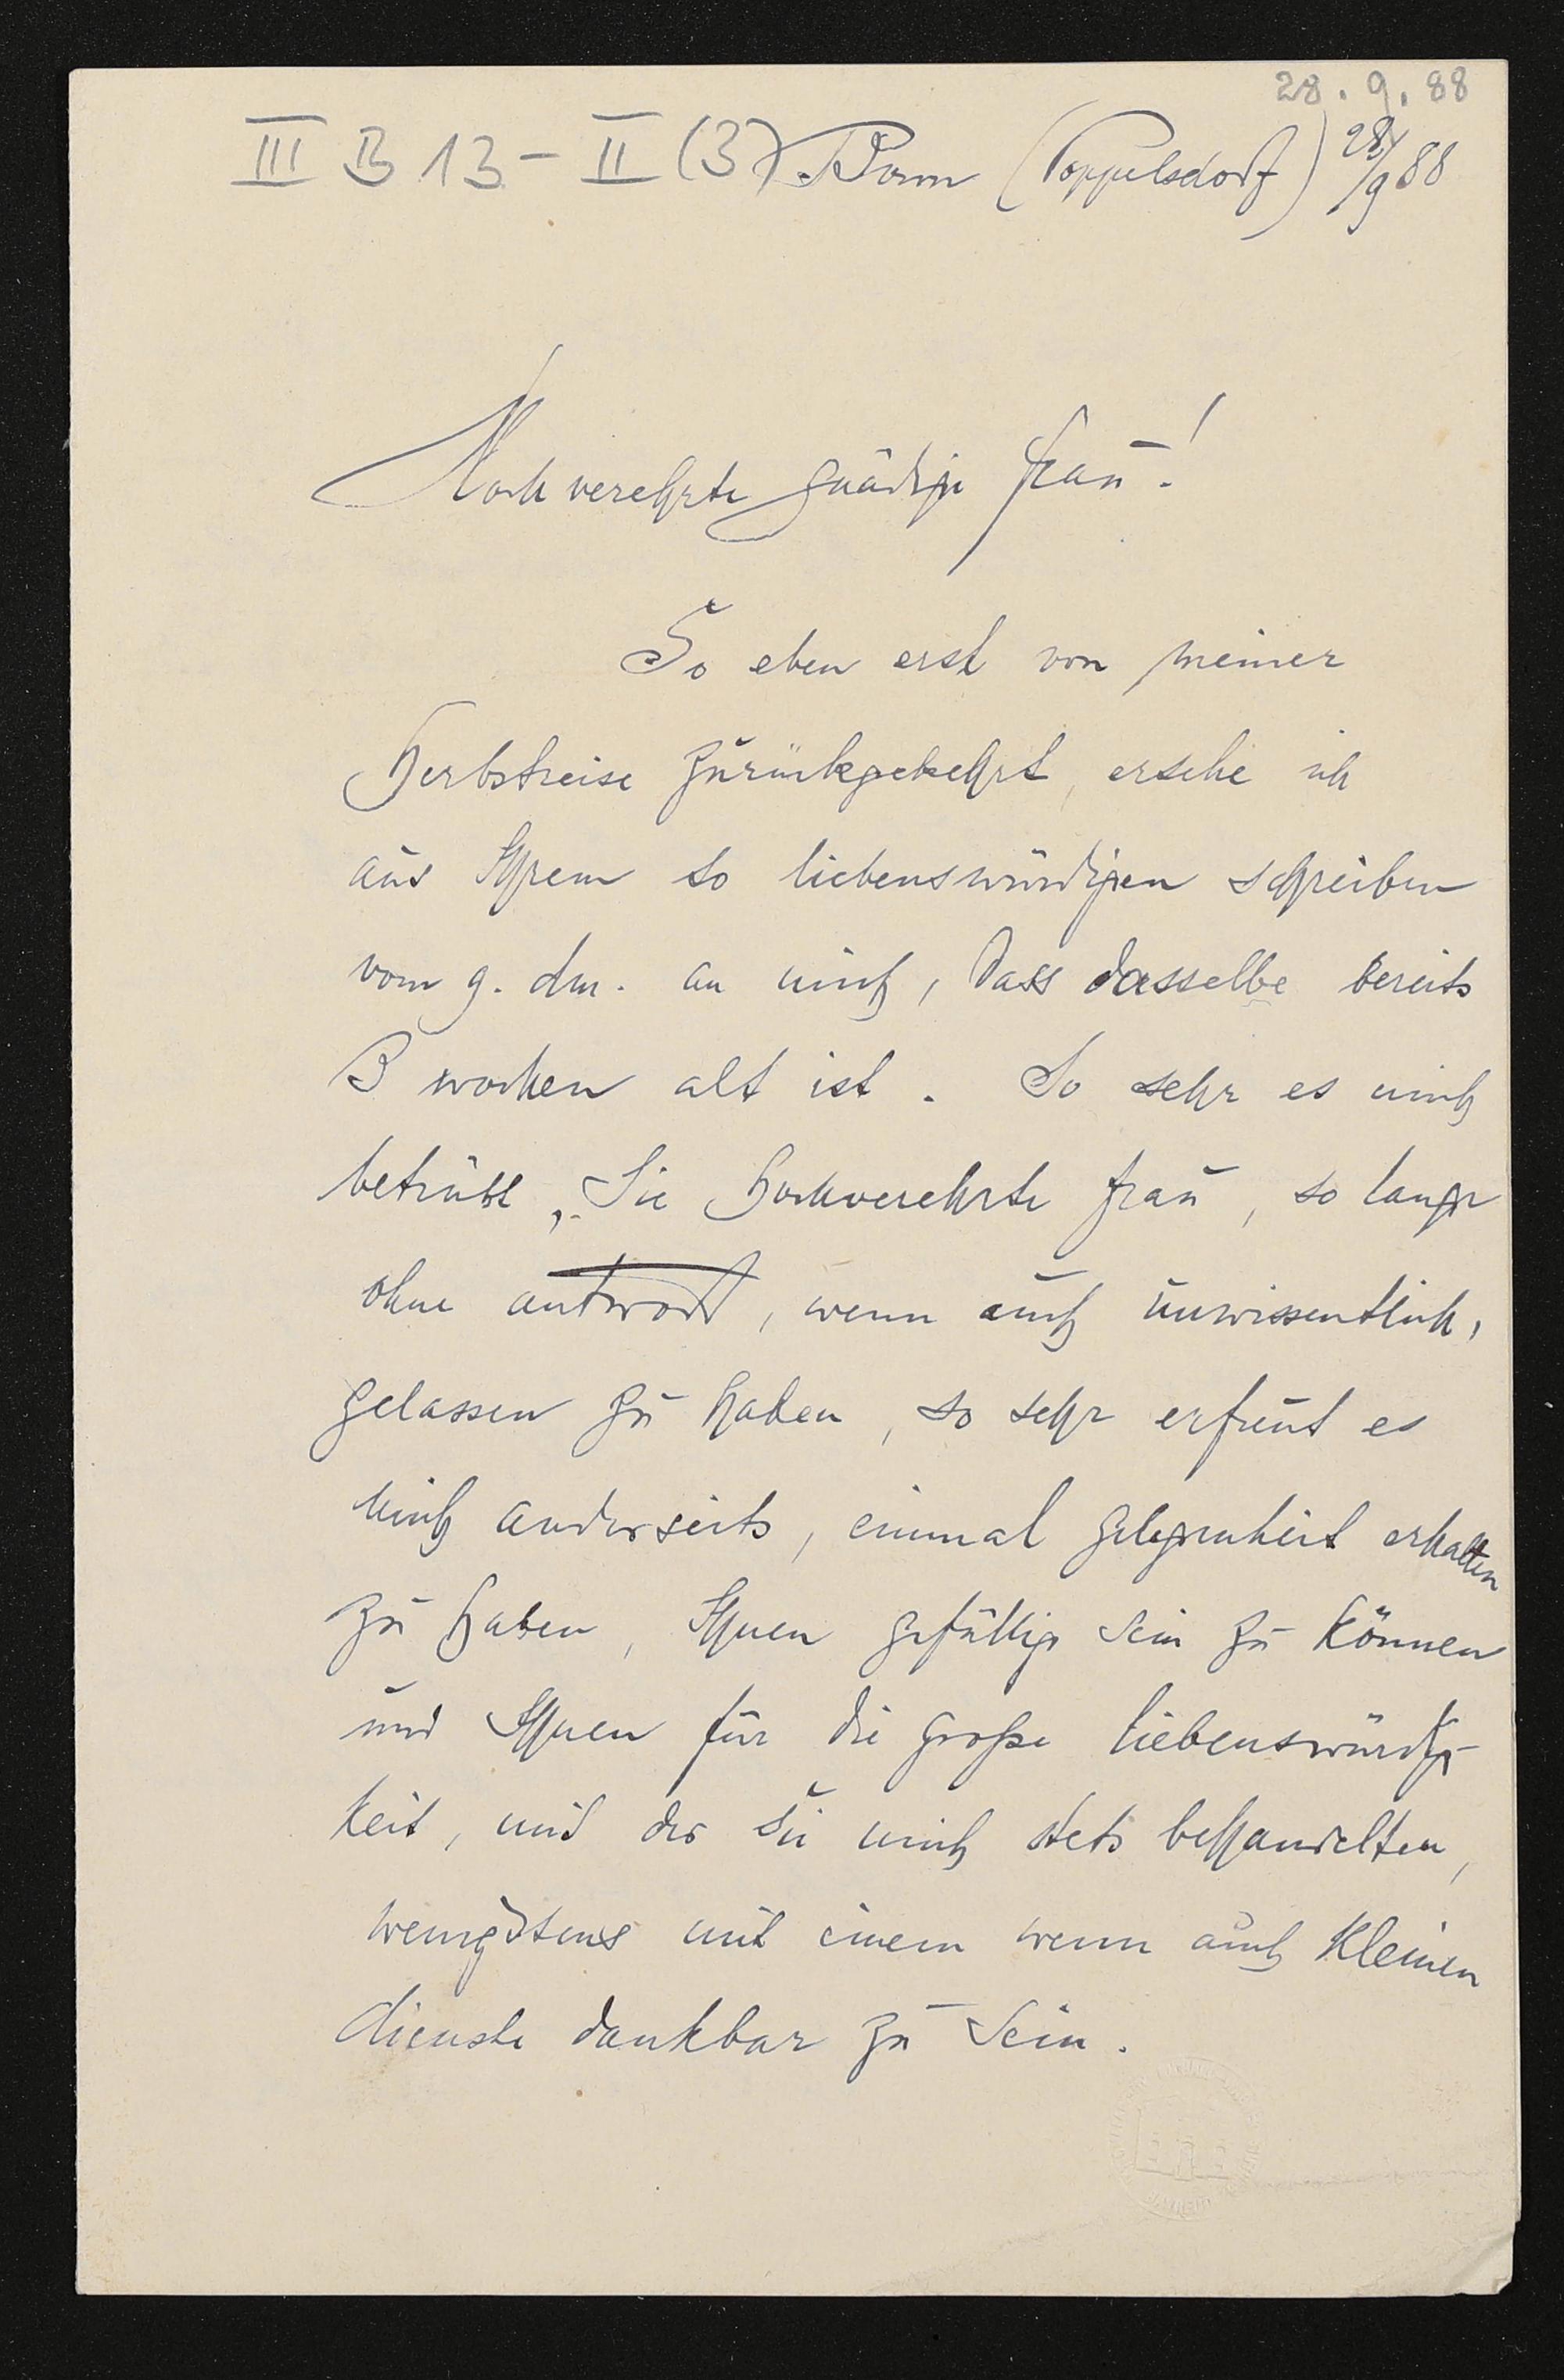 28. 9. 88
III B 13 - II (3) Bonn (Poppelsdorf) 28/9 88
Hochverehrte gnädige Frau!
So eben erst von meiner
Herbstreise zurückgekehrt, ersehe ich
aus Ihrem so liebenswürdigen Schreiben
vom 9. dm. an mich, dass dasselbe bereits
3 wochen alt ist. So sehr es mich
betrübt, Sie Hochverehrte Frau, so lange
ohne Antwort, wenn auch unwissentlich,
gelassen zu haben, so sehr erfreut es
mich anderseits, einmal Gelegenheit erhalten
zu haben, Ihnen gefällig sein zu können
und Ihnen für die große Liebenswürdig-
keit, mit der Sie mich stets behandelten,
wenigstens mit einem wenn auch kleinen
dienste dankbar zu sein.